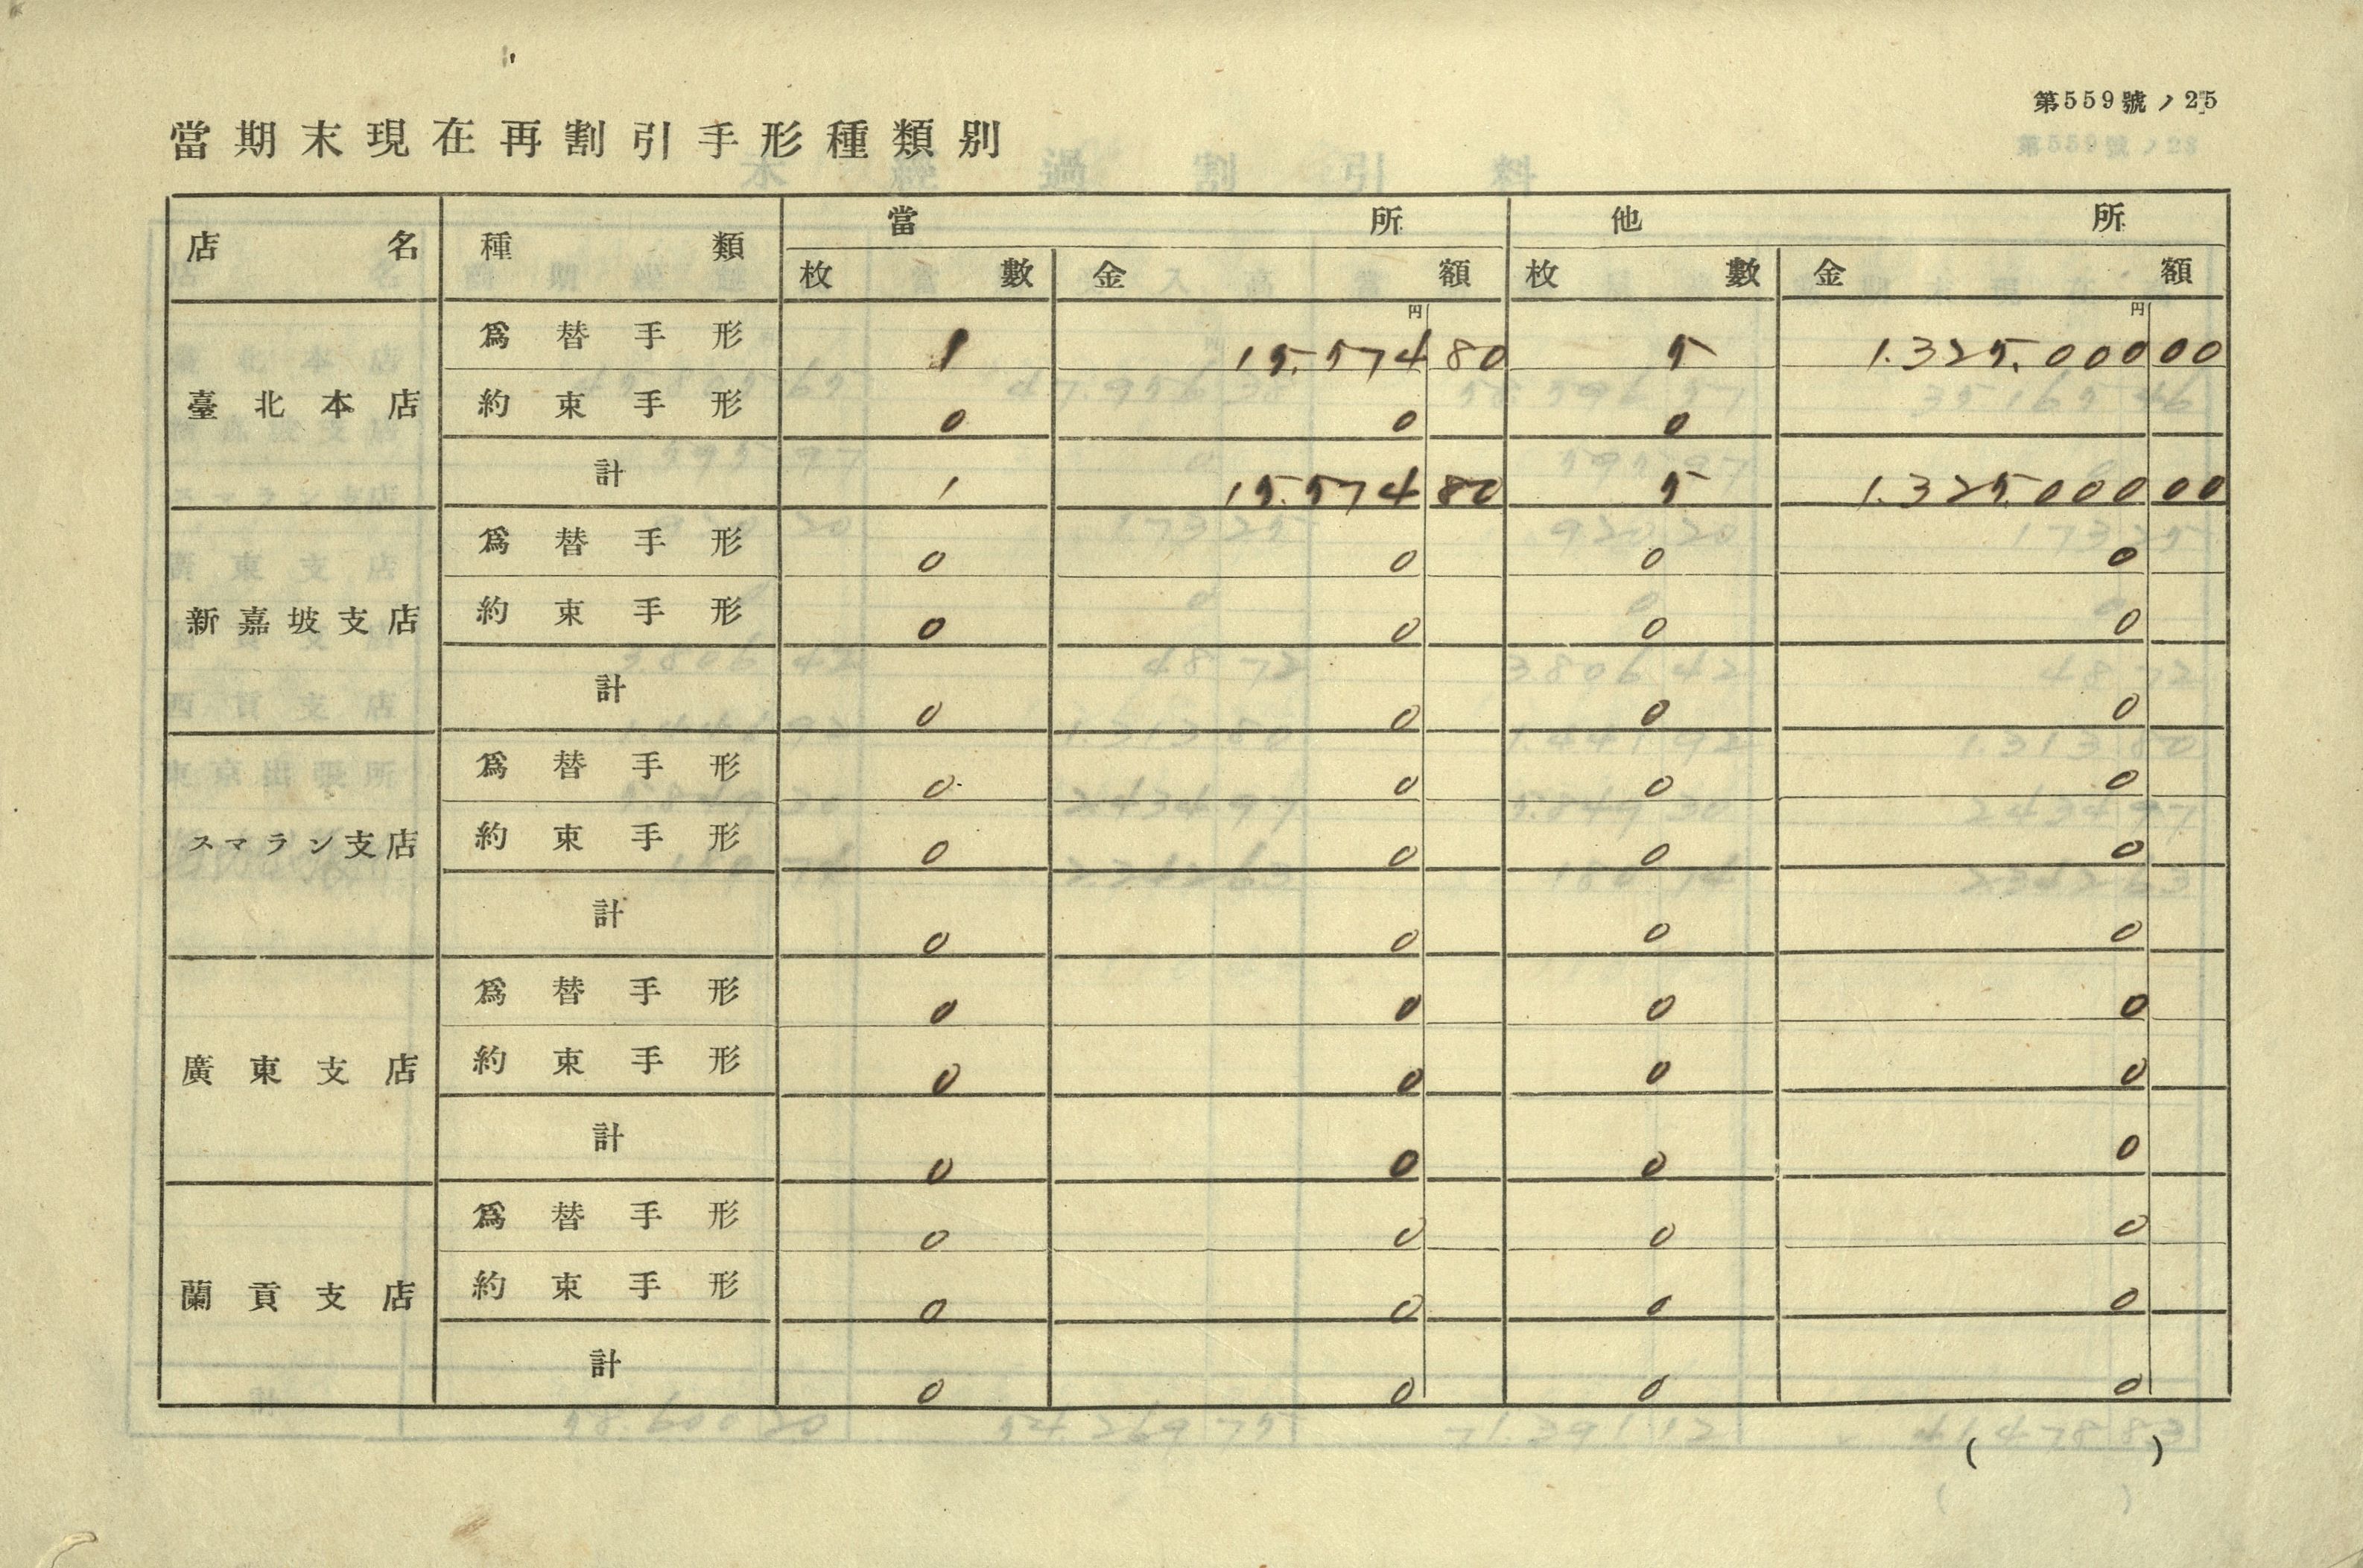 第559號ノ25
當期末現在再割引手形種類別
店名 種類 當所 他所
枚數 金額 枚數 金額
円 円
臺北本店
爲替手形 1 15.574 80 5 1.325.000 00
約束手形 0 0 0
計 1 15.574 80 5 1.325.000 00
新嘉坡支店
爲替手形 0 0 0 0
約束手形 0 0 0 0
計 0 0 0 0
スマラン支店
爲替手形 0 0 0 0
約束手形 0 0 0 0
計 0 0 0 0
廣東支店
爲替手形 0 0 0 0
約束手形 0 0 0 0
計 0 0 0 0
蘭貢支店
爲替手形 0 0 0 0
約束手形 0 0 0 0
計 0 0 0 0
( )